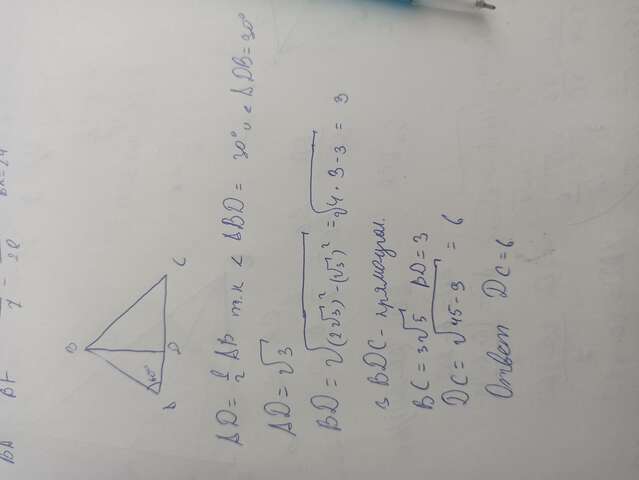 BA BF
BK=24
B
A 60° D C
AD = 1/2 AB т.к < ABD = 30° и < ADB = 90°
AD = √3
BD = √(2√3)² - (√3)² = √4 · 3 - 3 = 3
3 BDC - прямоугол.
BC = 3√5 BD = 3
DC = √45 - 9 = 6
Ответ DC = 6